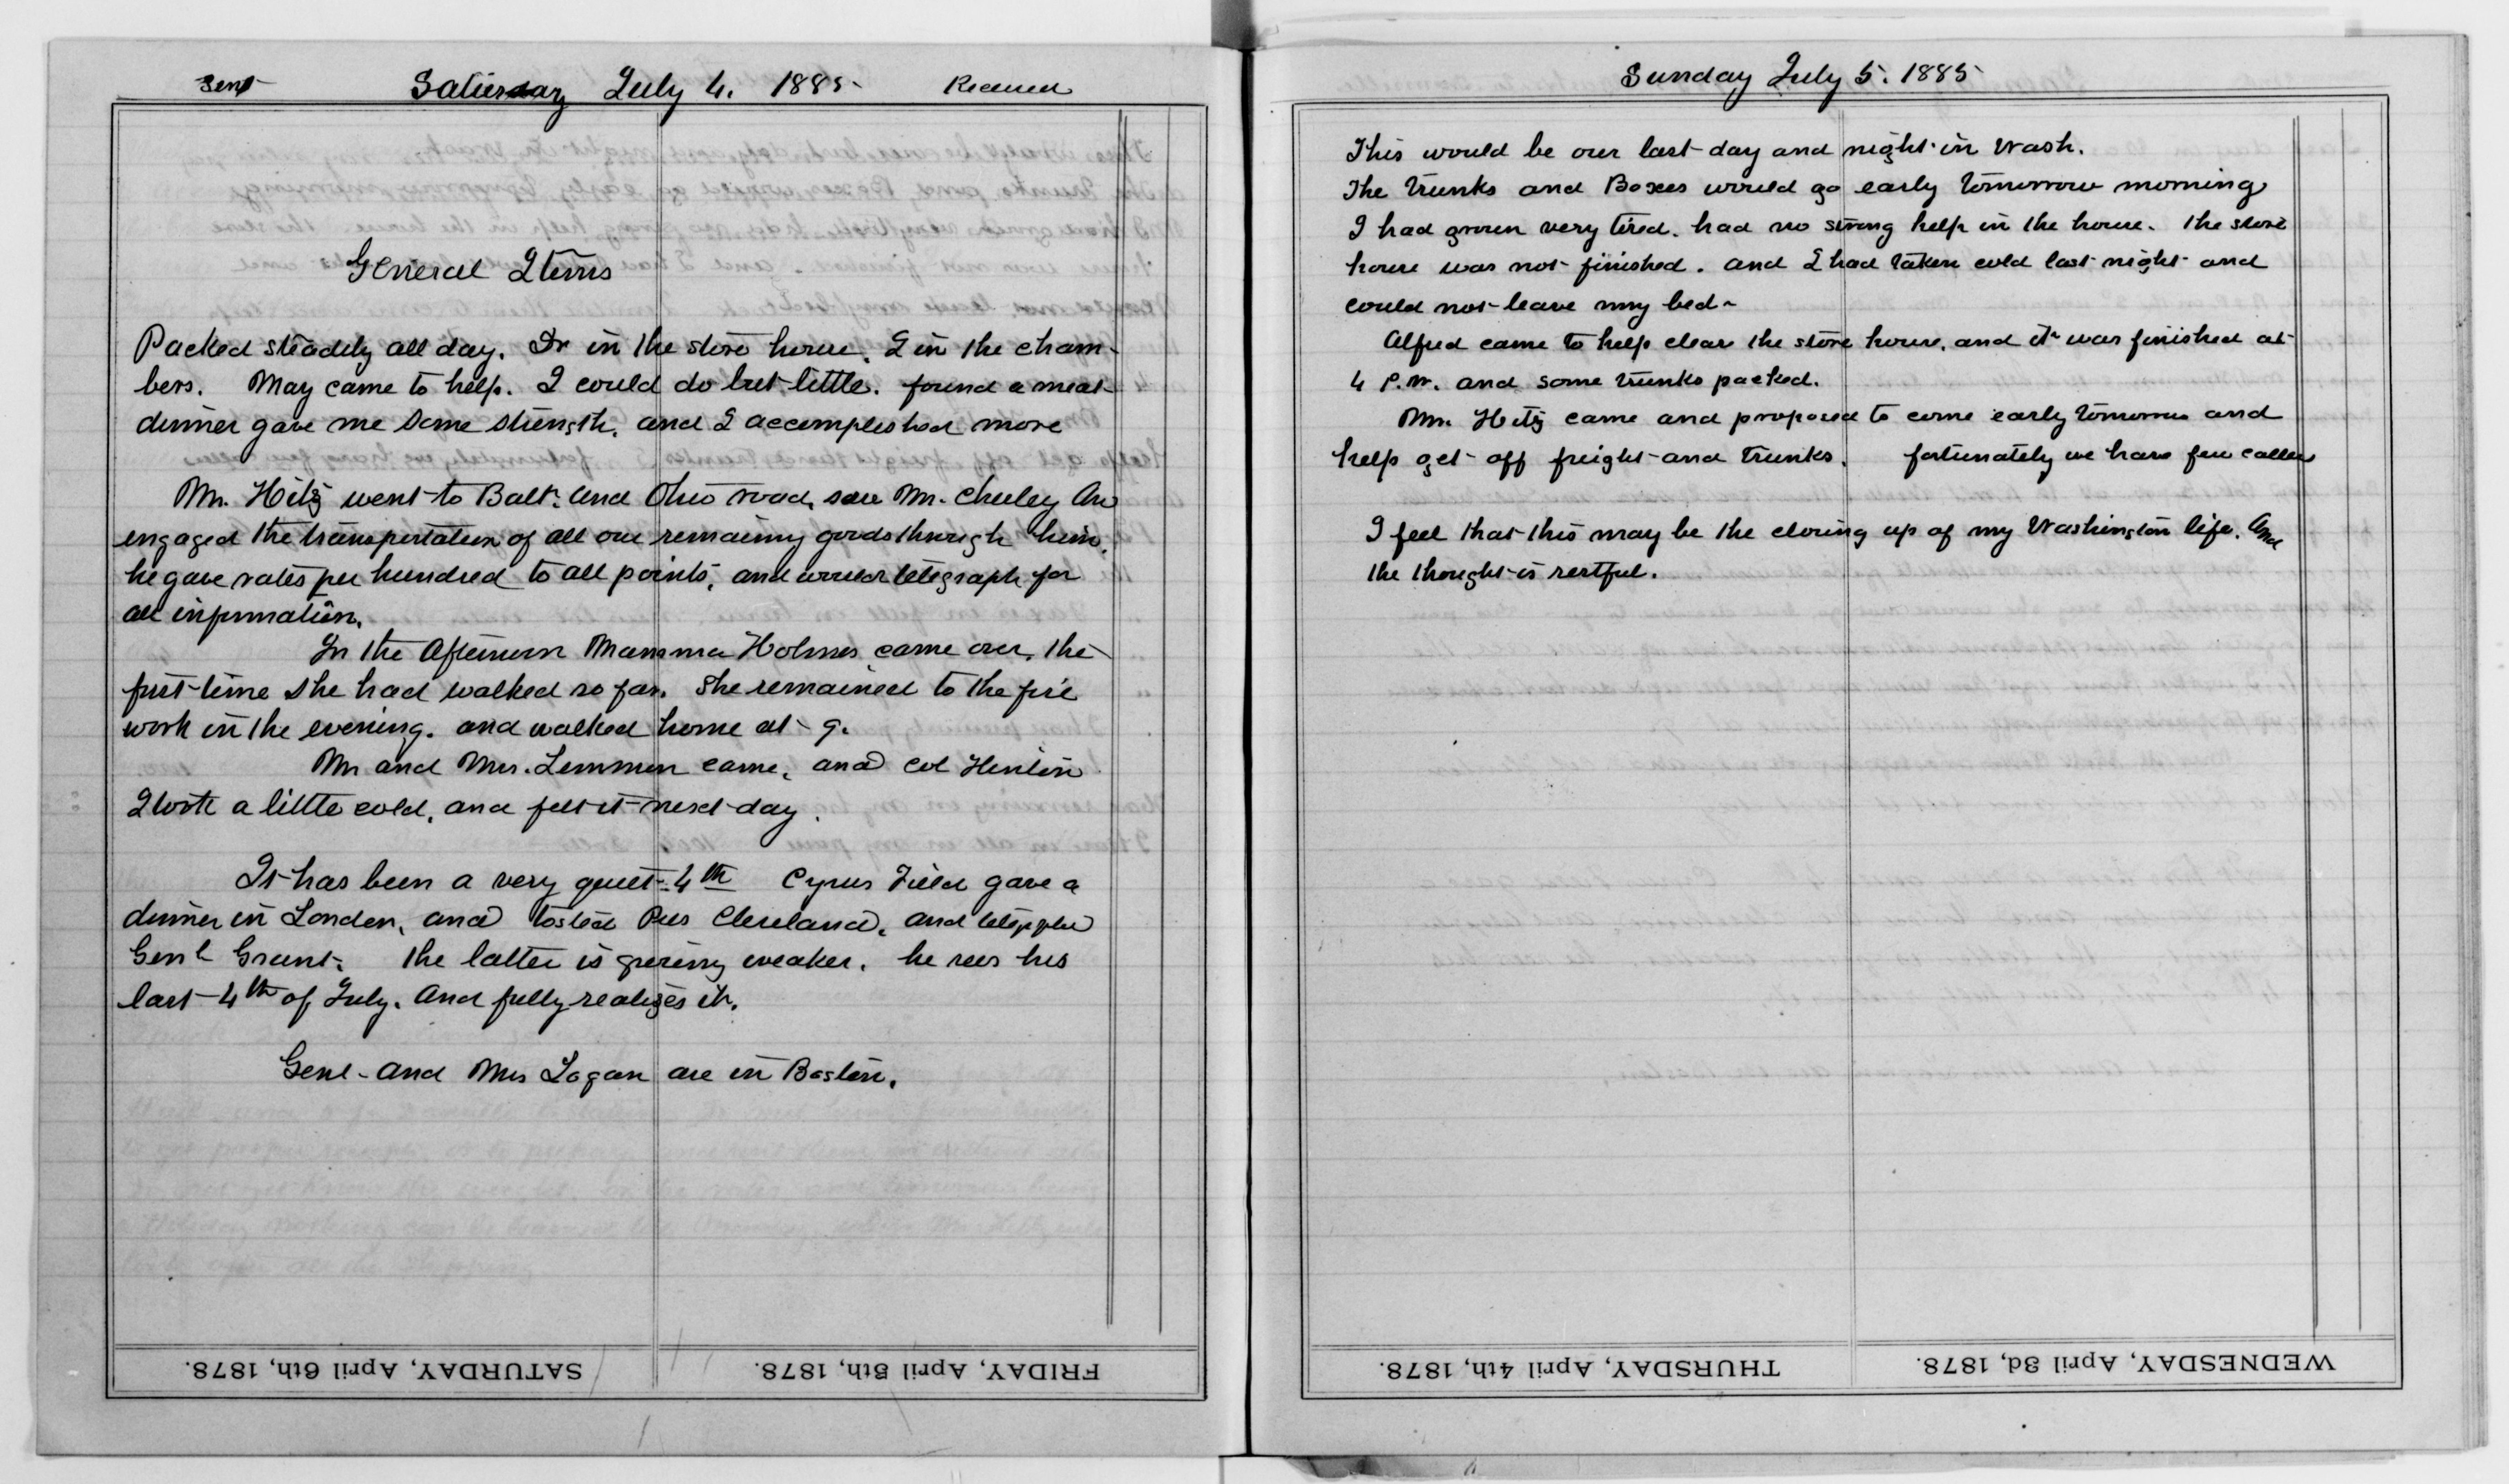 Sent Saturday July 4. 1885 Received
General Items
Packed steadily all day. Dr in the store house. I in the cham-
bers. May came to help. I could do but little. found a meat
dinner gave me some strength. and I accomplished more
Mr. Hitz went to Balt. and Ohio road, saw Mr. and
engaged the transportation of all our remaining goods through him.
he gave rates per hundred to all points, and would telegraph for
all information.
In the Afternoon Mamma Holmes came over. the
first time she had walked so far. She remained to the fire
work in the evening. and walked home at 9.
Mr and Mrs. Lemmon came, and Col Hinton
I took a little cold, and felt it next day.
It has been a very quiet 4th Cyrus Field gave a
dinner in London, and tosted Pres Cleveland, and
Genl Grant. the latter is growing weaker. he sees his
last 4th of July. And fully realizes it.
Genl - and Mrs Logan are in Boston.
SATURDAY, April 6th, 1878.
FRIDAY, April 5th, 1878.
Sunday July 5. 1885
This would be our last day and night in Wash.
The trunks and Boxes would go early tomorrow morning
I had grown very tired. had no strong help in the house. the store
house was not finished. and I had taken cold last night and
could not leave my bed -
Alfred came to help clear the store house, and it was finished at
4 P.M. and some trunks packed.
Mr. Hitz came and proposed to come early tomorrow and
help get off freight and trunks. fortunately we have few callers
I feel that this may be the closing up of my Washington life. And
the thought is restful.
THURSDAY, April 4th, 1878.
WEDNESDAY, April 3d, 1878.